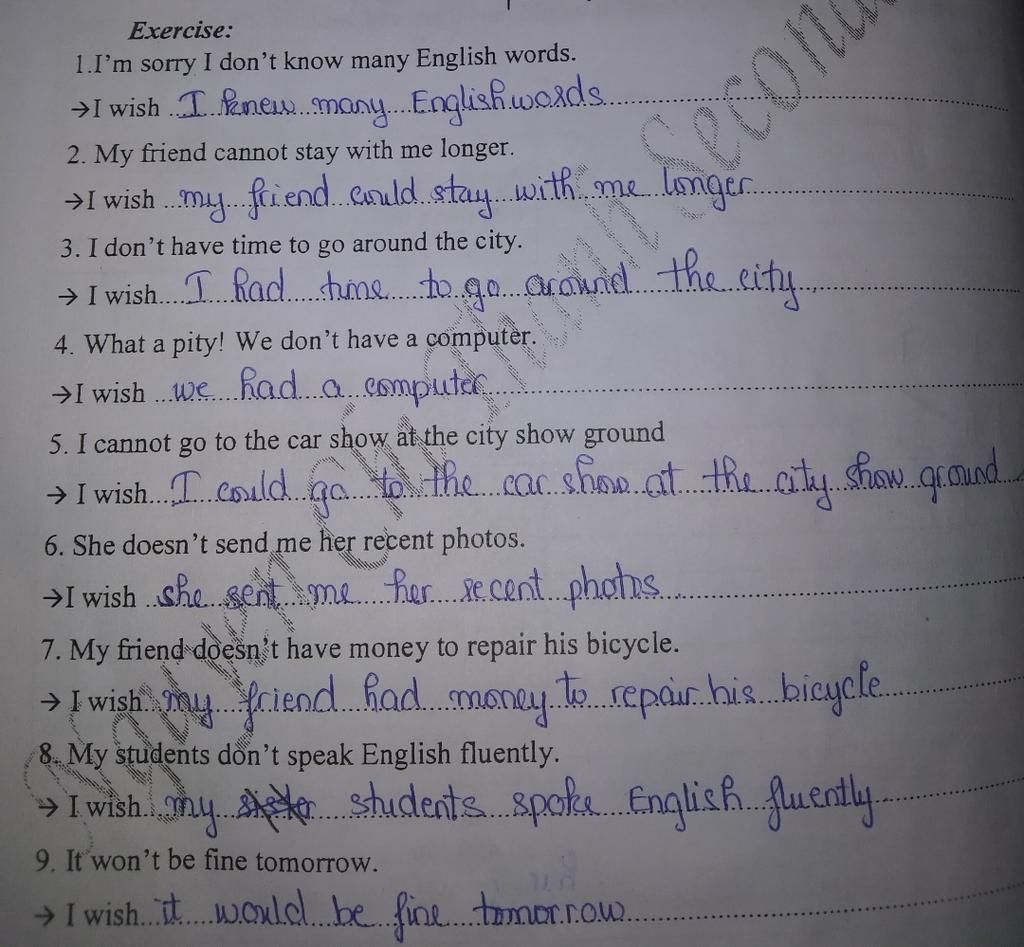 Exercise:
1.I'm sorry I don't know many English words.
→I wish I knew many English words
2. My friend cannot stay with me longer.
→I wish my friend could stay with me longer
3. I don't have time to go around the city.
→ I wish I had time to go around the city
4. What a pity! We don't have a computer.
→I wish we had a computer
5. I cannot go to the car show at the city show ground
→ I wish I could go to the car show at the city show ground
6. She doesn't send me her recent photos.
→I wish she sent me her recent photos
7. My friend doesn't have money to repair his bicycle.
→ I wish my friend had money to repair his bicycle
8. My students don't speak English fluently.
→ I wish my students spoke English fluently
9. It won't be fine tomorrow.
→ I wish it would be fine tomorrow